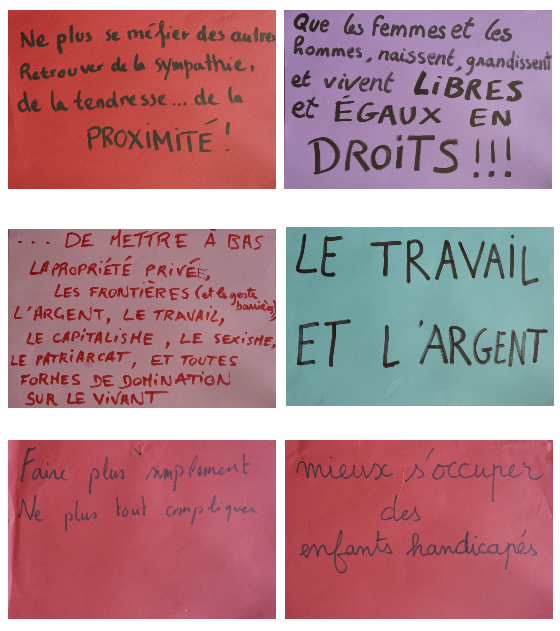 Ne plus se méfier des autres
Retrouver de la sympathie,
de la tendresse... de la
PROXIMITÉ !
Que les femmes et les
hommes, naissent, grandissent
et vivent LIBRES
et ÉGAUX EN
DROITS !!!
... DE METTRE À BAS
LA PROPRIÉTÉ PRIVÉE,
LES FRONTIÈRES (et le geste barrière)
L'ARGENT, LE TRAVAIL,
LE CAPITALISME, LE SEXISME,
LE PATRIARCAT, ET TOUTES
FORMES DE DOMINATION
SUR LE VIVANT
LE TRAVAIL
ET L'ARGENT
Faire plus simplement
Ne plus tout compliquer
mieux s'occuper
des
enfants handicapés